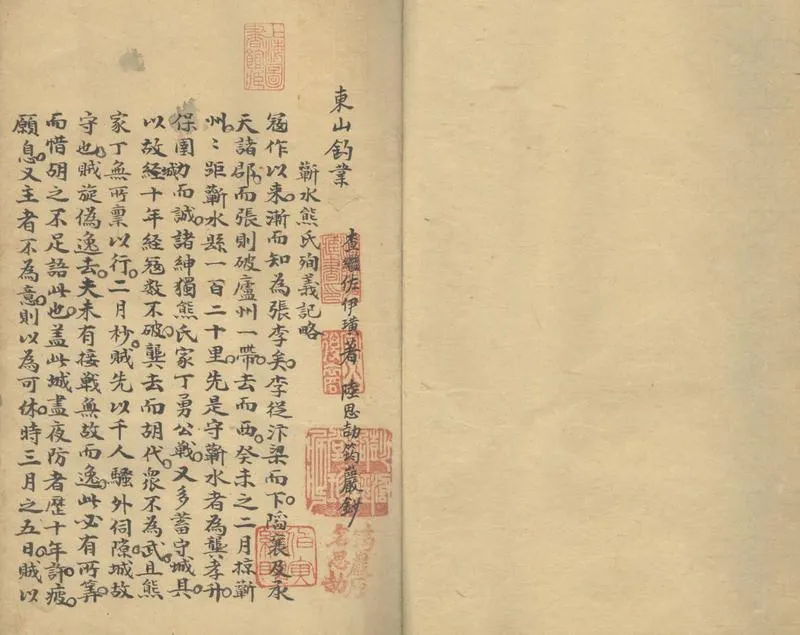 東山釣業
查繼佐伊璜著 陸思劼筠巖鈔
蘄水熊氏殉義記略
寇作以来漸而知為張李矣李從汴梁而下陷襄及承
天諸郡而張則破廬州一帶去而西癸未之二月掠蘄
州〻距蘄水縣一百二十里先是守蘄水者為龔孝升
保圍城力而誠諸紳獨熊氏家丁勇公戰又多蓄守城具
以故經十年経寇数不破龔去而胡代衆不為武且熊
家丁無所稟以行二月杪賊先以千人騷外伺隙城故
守也賊旋偽逸去夫未有接戦無故而逸此必有所筭
而惜胡之不足語此也盖此城晝夜防者歷十年許疲
願息又主者不為意則以為可休時三月之五日賊以
上海圖書館藏